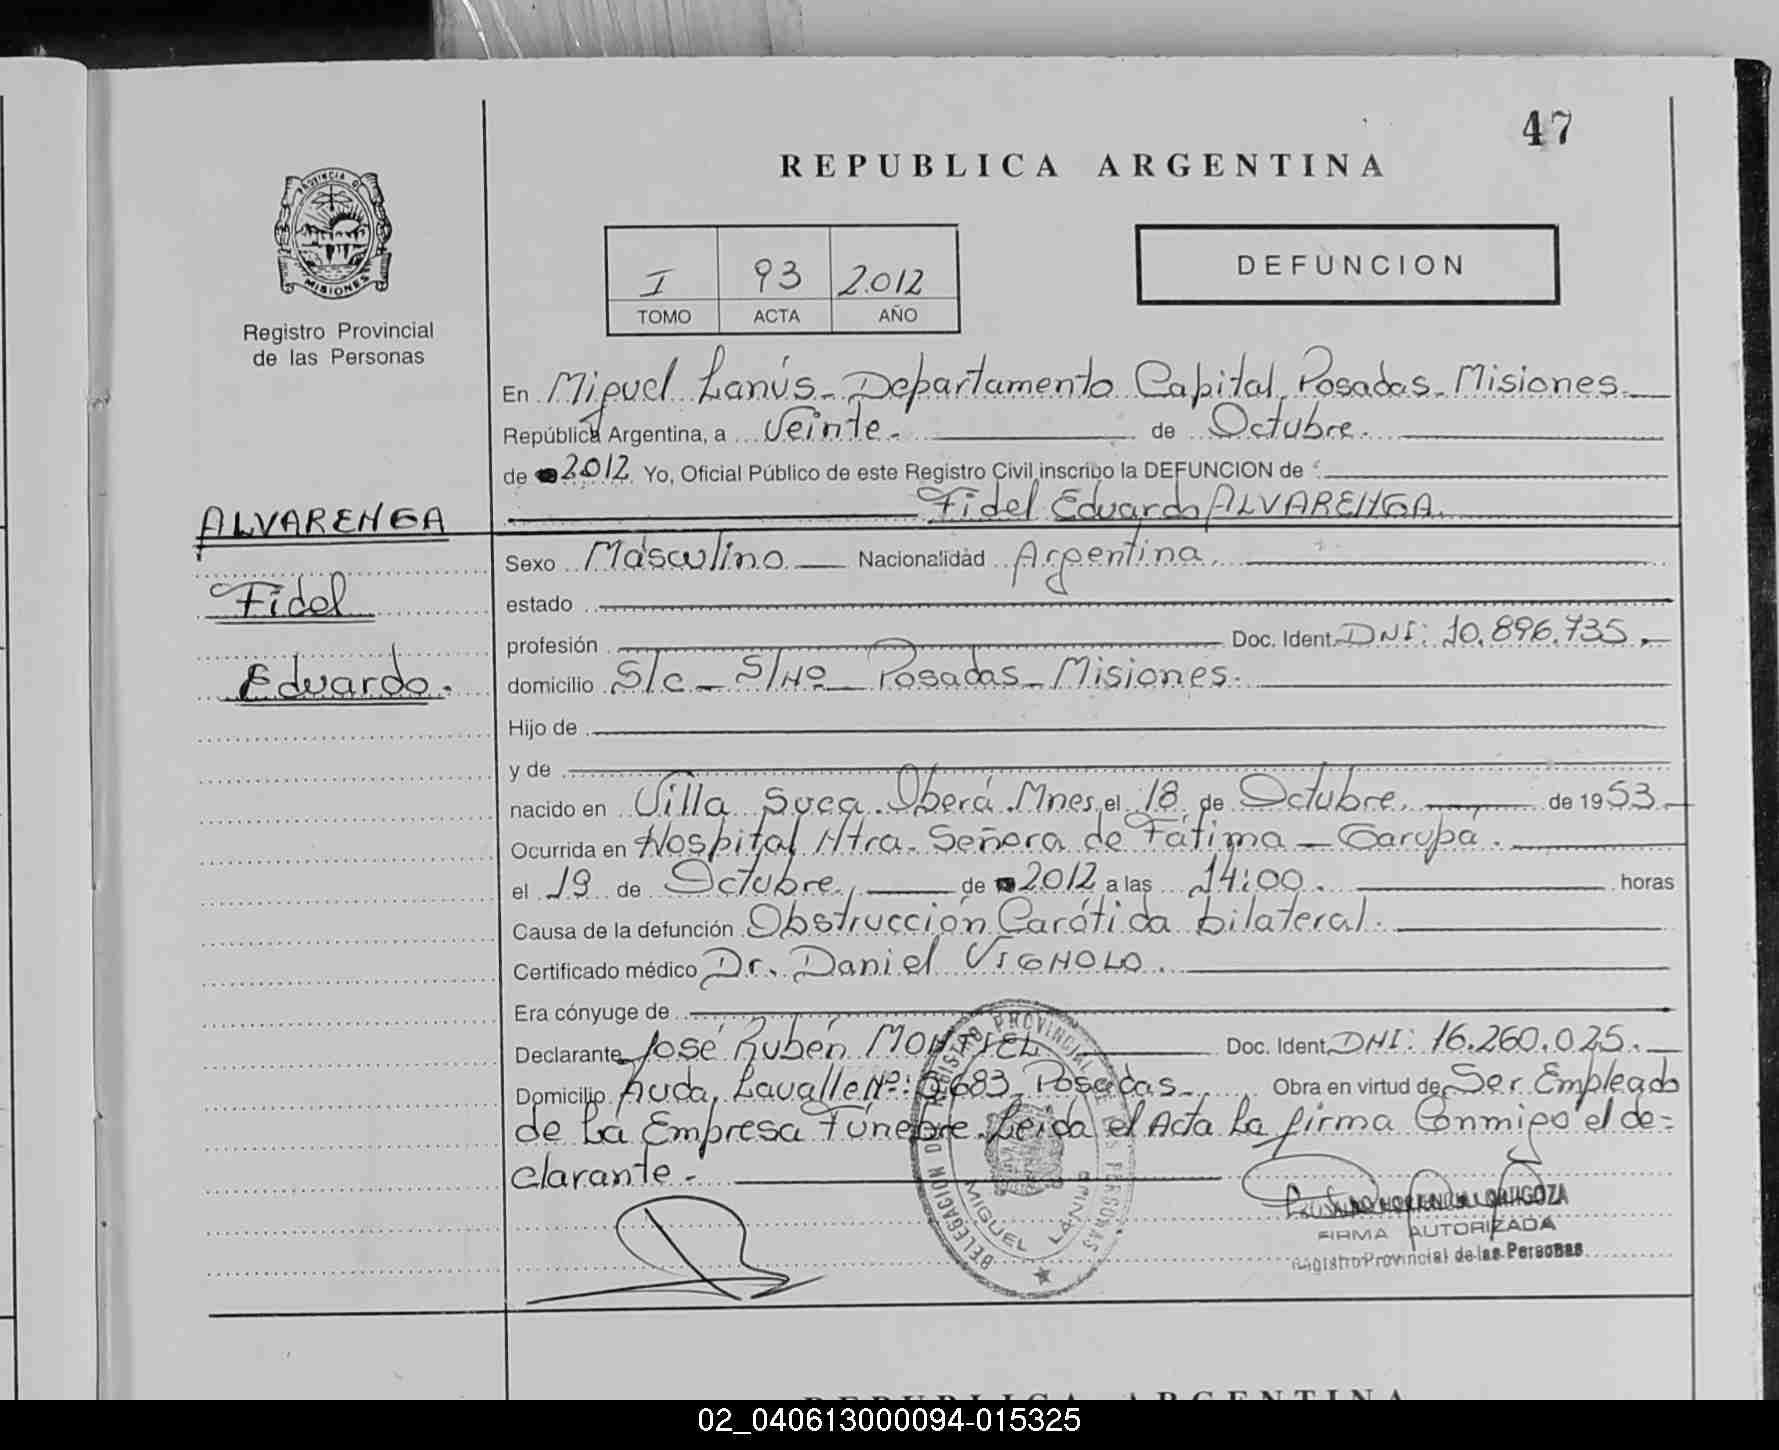 47
REPUBLICA ARGENTINA
PROVINCIA DE
MISIONES
Registro Provincial
de las Personas
I 93 2012
TOMO ACTA AÑO
DEFUNCION
En Miguel Lanús - Departamento Capital, Posadas - Misiones
República Argentina, a Veinte - de Octubre
de 2012 Yo, Oficial Público de este Registro Civil inscribo la DEFUNCION de
Fidel Eduardo ALVARENGA.
ALVARENGA
Fidel
Eduardo.
Sexo Masculino Nacionalidad Argentina,
estado
profesión Doc. Ident. DNI: 10.896.735.
domicilio S/c - S/Nº Posadas - Misiones.
Hijo de
y de
nacido en Villa Svea. Oberá. Mnes, el 18 de Octubre, de 1953
Ocurrida en Hospital Ntra. Señora de Fátima - Garupá.
el 19 de Octubre, de 2012 a las 14:00. horas
Causa de la defunción Obstrucción Carótida bilateral.
Certificado médico Dr. Daniel VIGNOLO.
Era cónyuge de
Declarante José Rubén MONTIEL Doc. Ident. DNI: 16.260.025.
Domicilio Avda. Lavalle Nº: 3683, Posadas - Obra en virtud de Ser Empleado
de La Empresa Fúnebre. Leida el Acta La firma Conmigo el de=
clarante -
DELEGACION REGISTRO PROVINCIAL DE LAS PERSONAS
MIGUEL LANUS
FIRMA AUTORIZADA
Registro Provincial de las Personas
REPUBLICA ARGENTINA
02_040613000094-015325